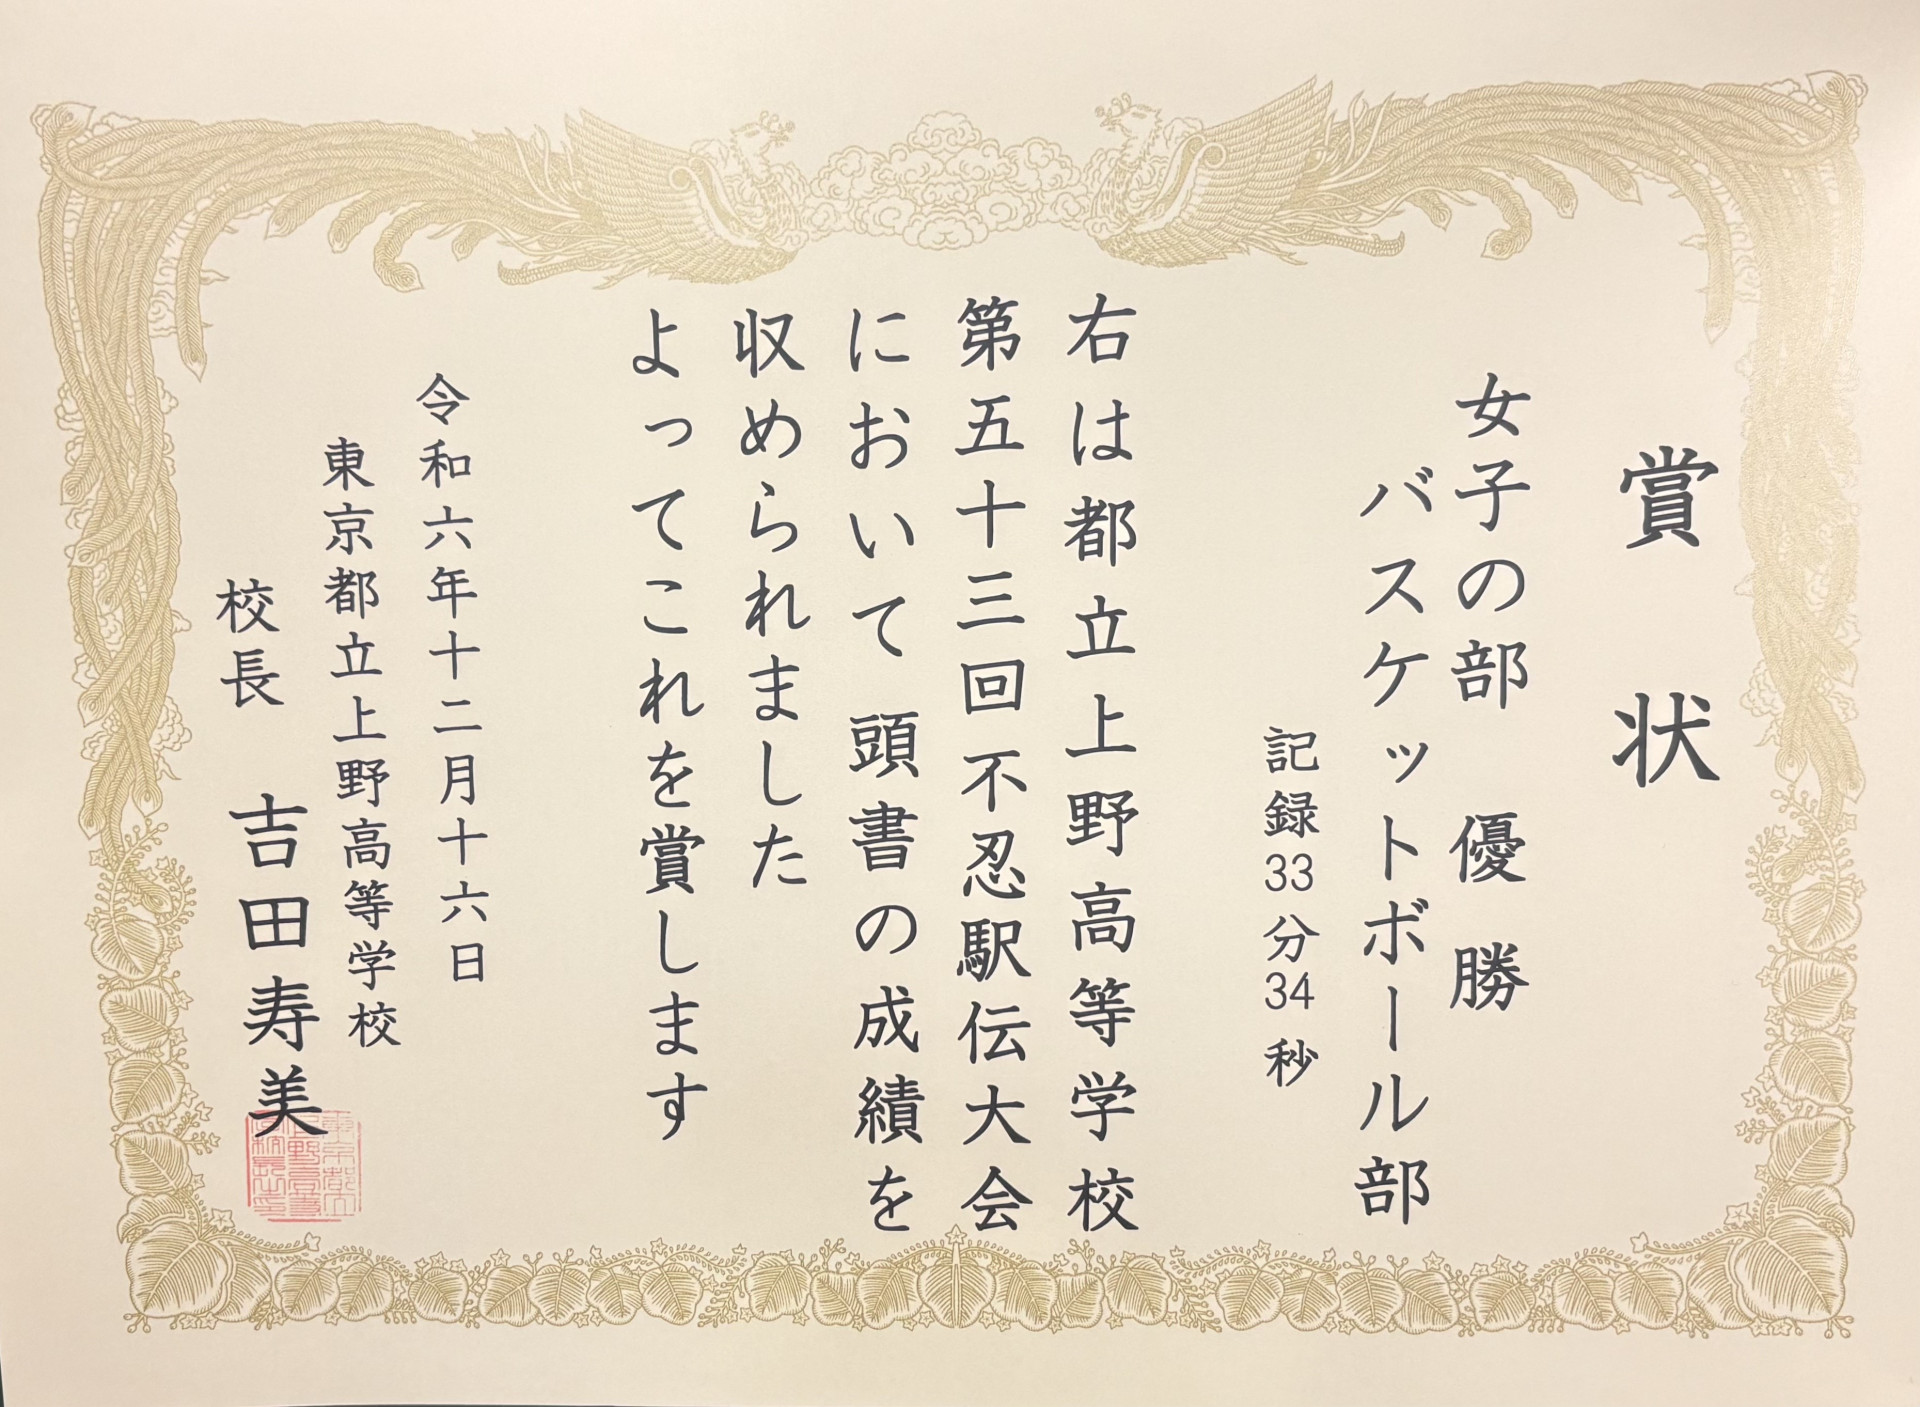 賞状
女子の部 優勝
バスケットボール部
記録33分34秒
右は都立上野高等学校
第五十三回不忍駅伝大会
において頭書の成績を
収められました
よってこれを賞します
令和六年十二月十六日
東京都立上野高等学校
校長 吉田寿美